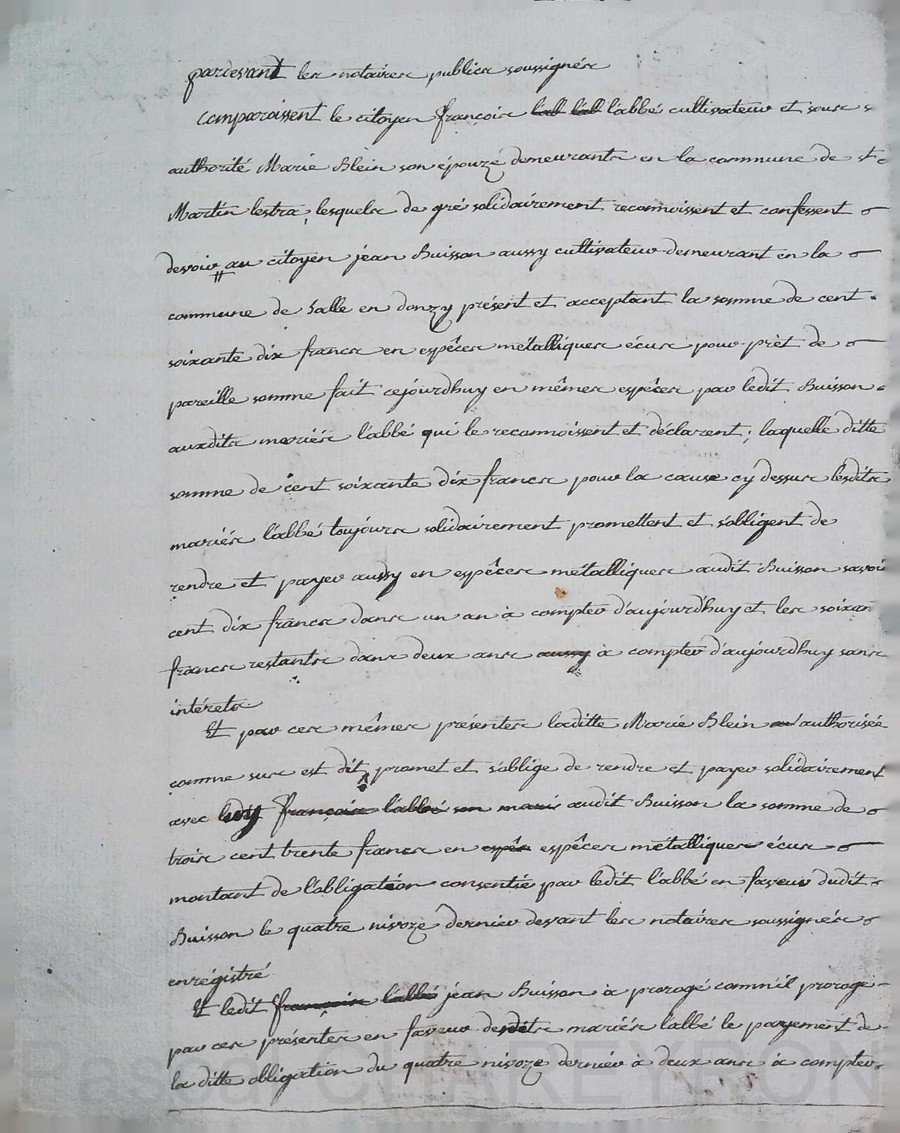 pardevant les notaires publics soussignés
comparaissent le citoyen françois l'abbé cultivateur et sous s
authorité Marie Blein son épouze demeurants en la commune de st
Martin lestra, lesquels de gré solidairement reconnoissent et confessent
devoir au citoyen jean Buisson aussy cultivateur demeurant en la
commune de Salle en donzy présent et acceptant la somme de cent
soixante dix francs en espêces métalliques écus pour prêt de
pareille somme fait cejourdhuy en mêmes espêces par ledit Buisson
auxdits mariés l'abbé qui le reconnoissent et déclarent; laquelle ditte
somme de cent soixante dix francs pour la cause cy dessus lesdits
mariés l'abbé toujours solidairement promettent et s'obligent de
rendre et payer aussy en espêces métalliques audit Buisson savoir
cent dix francs dans un an à compter d'aujourd'huy et les soixan
francs restants dans deux ans aussy à compter d'aujourdhuy sans
intérets
Et par ces mêmes présentes laditte Marie Blein authorisée
comme sus est dit promet et s'oblige de rendre et payer solidairement
avec luy françois l'abbé son mari audit Buisson la somme de
trois cent trente francs en espês espêces métalliques écus
montant de l'obligation consentie par ledit l'abbé en faveur dudit
Buisson le quatre nivoze dernier devant les notaires soussignés
enrégistré
Et ledit françois l'abbé jean Buisson a prorogé comm'il proroge
par ces présentes en faveur desdits mariés l'abbé le payement de
la ditte obligation du quatre nivoze dernier à deux ans à compter
Pascal CHAREYRON